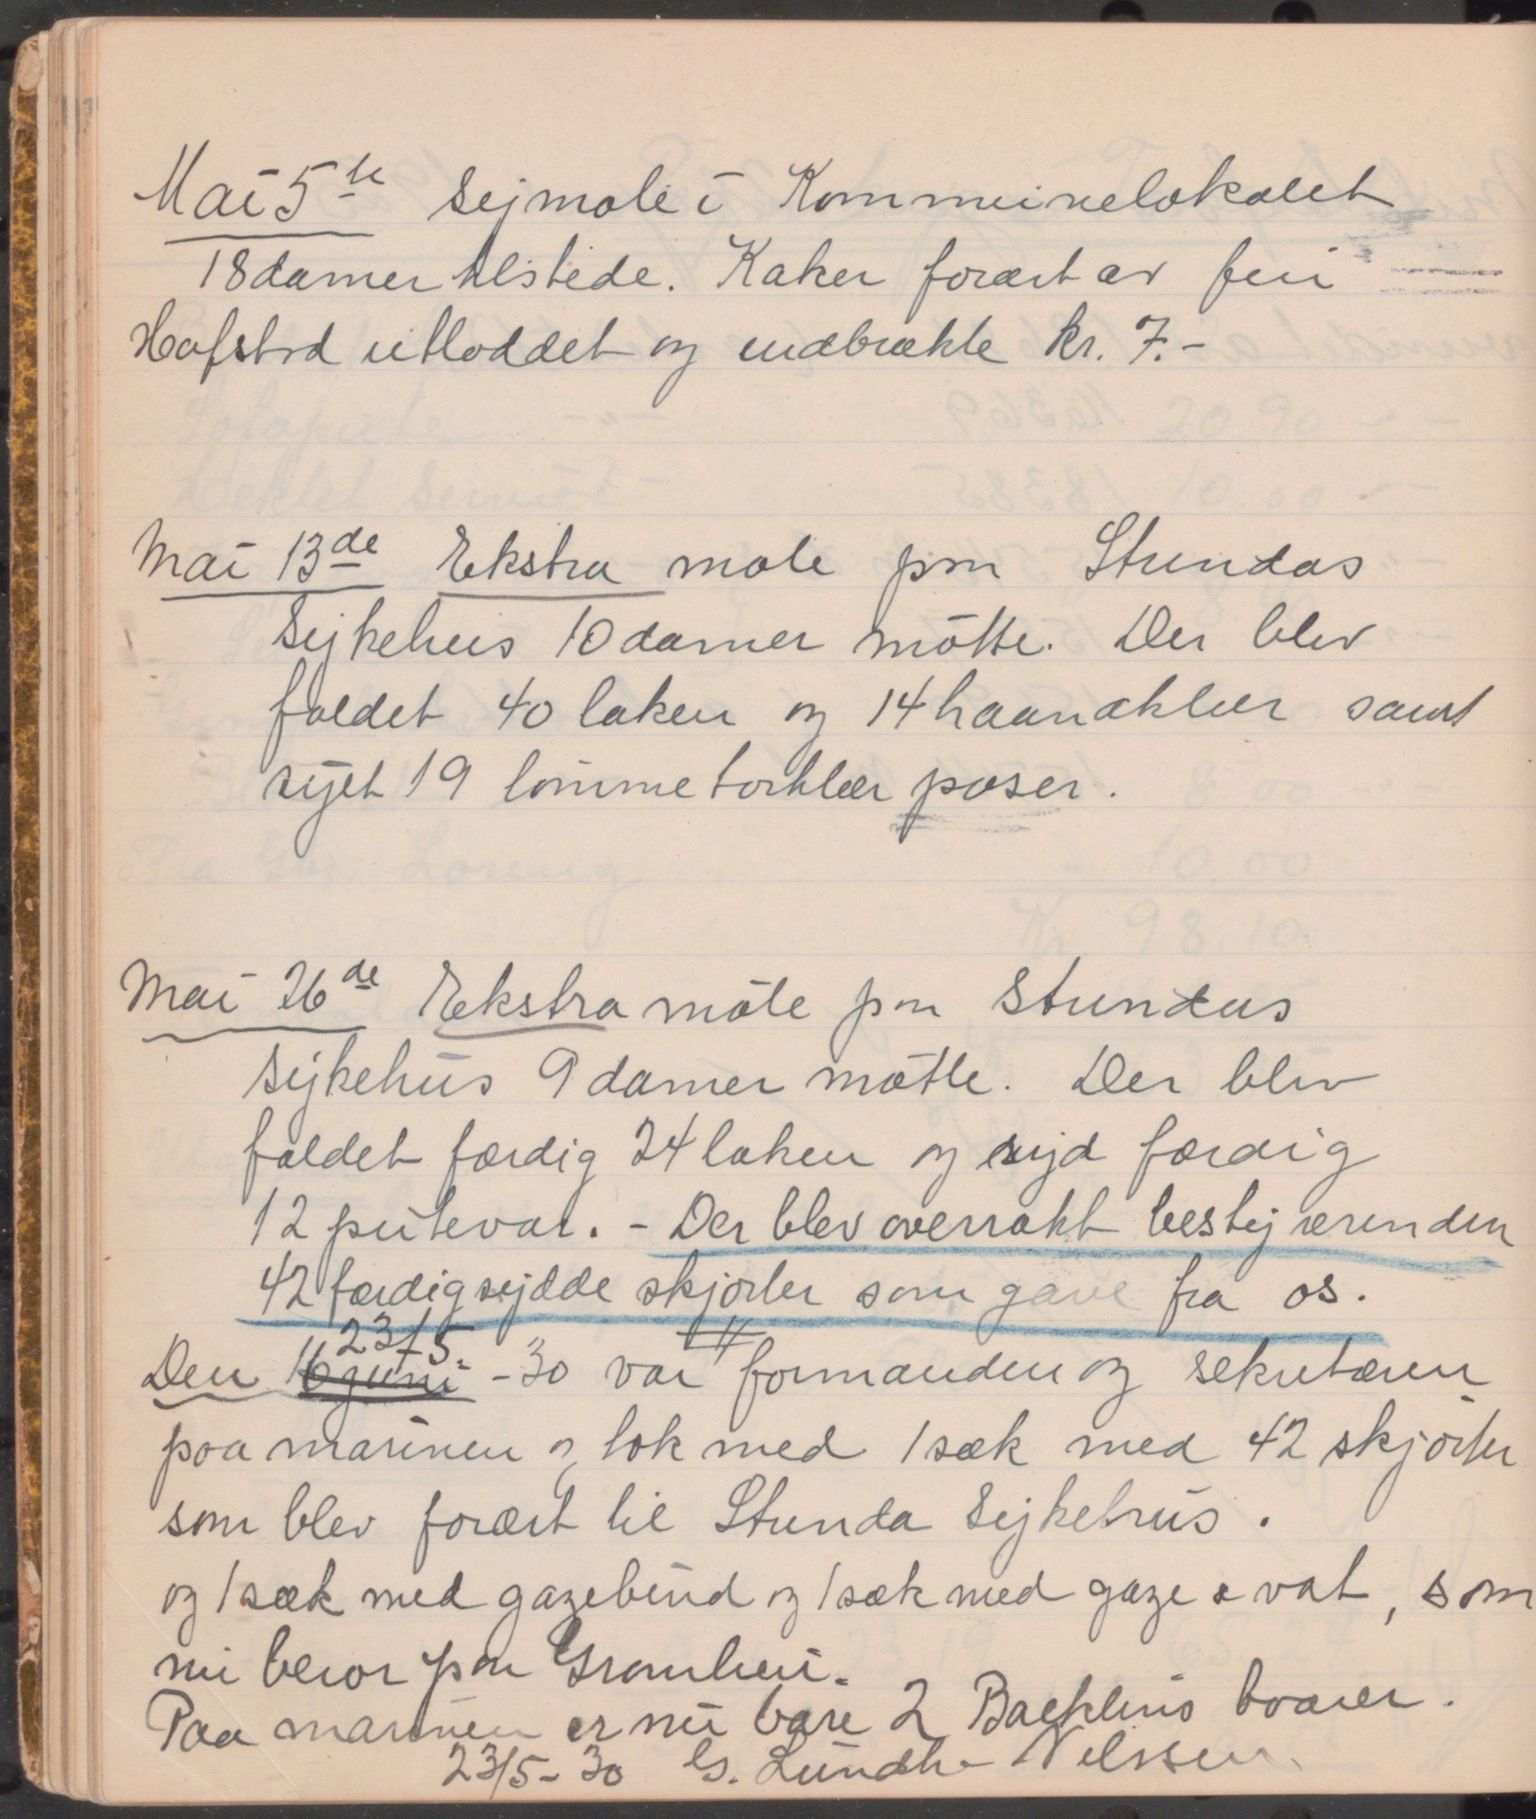 Mai 5te Sÿmøte i Kommunelokalet
18 damer tilstede. Kaker foræret av fru
Hafstad utloddet og indbrakte kr. 7.-
Mai 13de Ekstra møte paa Stundas
Sykehus 10 damer møtte. Der blev
foldet 40 laken og 14 haandklær samt
syet 19 lommetørklær poser.
Mai 26de Ekstra møte paa Stundas
Sykehus 9 damer møtte. Der blev
foldet færdig 24 laken og syd færdig
12 putevar. - Der blev overrakt bestyrerinden
42 færdigsydde skjorter som gave fra os.
23/5.
Den 16 juni - 30 var formanden og sekretæren
paa marinen og tok med 1 sæk med 42 skjorter
som blev foræret til Stunda Sykehus.
og 1 sæk med gazebind og 1 sæk med gaze & vat, som
nu beror paa Granheim.
Paa marinen er nu bare 2 Bækkens baarer.
23/5 - 30 G. Lundh-Nilssen